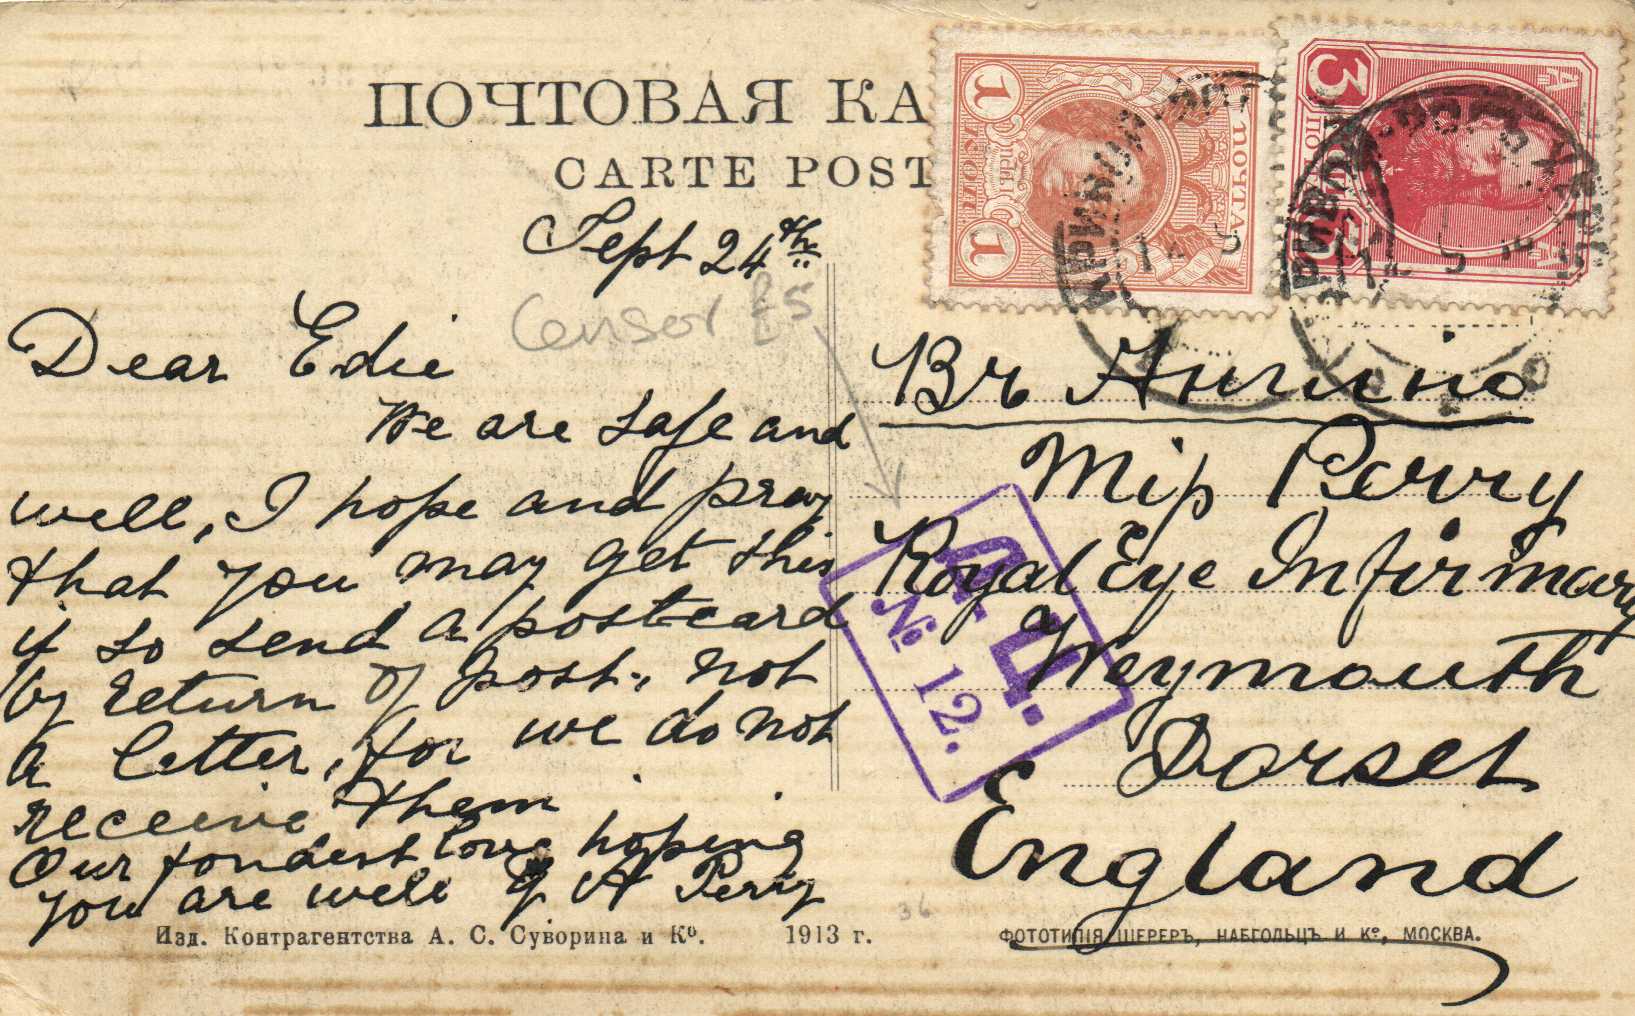 ПОЧТОВАЯ КА
CARTE POST
1
1
КОП.
ПОЧТА
3
Sept 24th
Censor
Dear Edie
We are safe and
well, I hope and pray
that you may get this
if so send a postcard
by return of post, not
a letter, for we do not
receive them
Our fondest love hoping
you are well G A Perry
Въ Англiю
Miss Perry
Royal Eye Infirmary
Weymouth
Dorset
England
Д. Ц.
№ 12.
36
Изд. Контрагентства А. С. Суворина и Кº. 1913 г.
ФОТОТИПІЯ ШЕРЕРЪ, НАБГОЛЬЦЪ И Кº, МОСКВА.